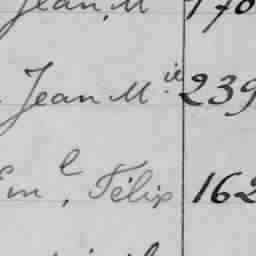 Jean, M 170
Jean M.ie 239
Em.l, Félix 162